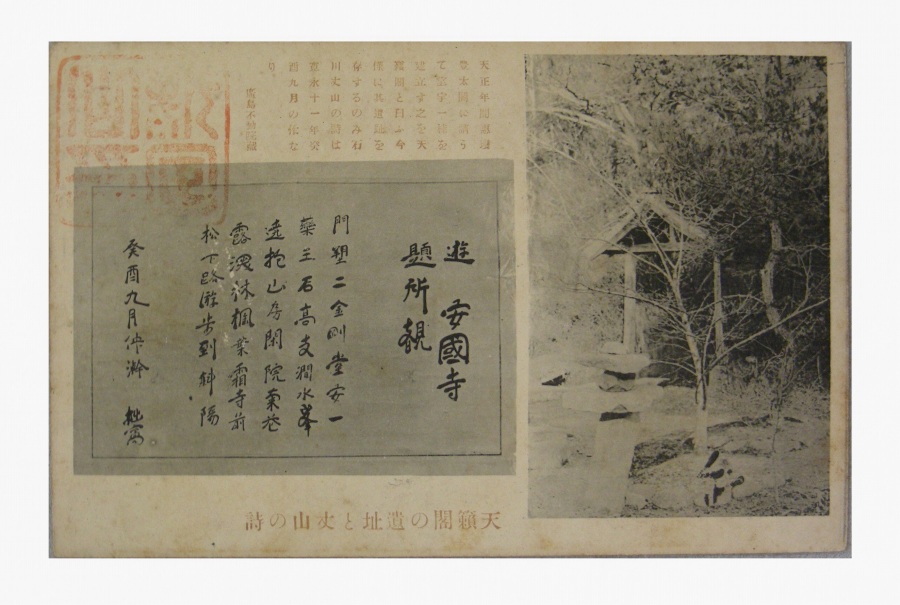 天正年間恵瓊
豊太閤に請う
て堂宇一棟を
建立す之を天
籟閣と曰ふ今
僅に其遺趾を
存するのみ石
川丈山の詩は
寛永十一年癸
酉九月の作な
り
遊 安國寺
題所観
門塑二金剛堂安一
藥王石高支澗水峯
遠抱山房閑院菊花
露深林楓葉霜寺前
松下路遊歩到斜陽
癸酉九月
天籟閣の遺址と丈山の詩